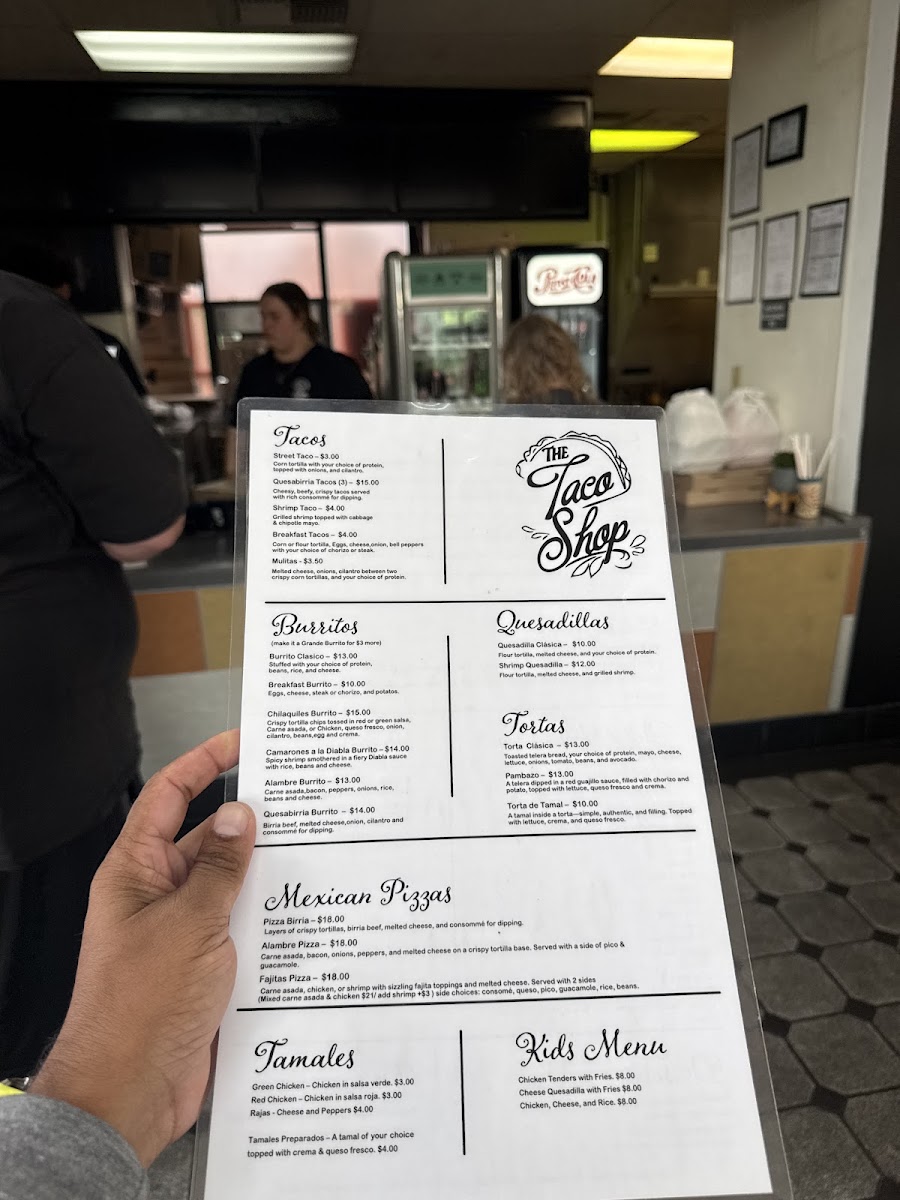 Pepsi-Cola
Tacos
Street Taco – $3.00
Corn tortilla with your choice of protein,
topped with onions, and cilantro.
Quesabirria Tacos (3) – $15.00
Cheesy, beefy, crispy tacos served
with rich consommé for dipping.
Shrimp Taco – $4.00
Grilled shrimp topped with cabbage
& chipotle mayo.
Breakfast Tacos – $4.00
Corn or flour tortilla, Eggs, cheese,onion, bell peppers
with your choice of chorizo or steak.
Mulitas - $3.50
Melted cheese, onions, cilantro between two
crispy corn tortillas, and your choice of protein.
THE
Taco
Shop
Burritos
(make it a Grande Burrito for $3 more)
Burrito Clasico – $13.00
Stuffed with your choice of protein,
beans, rice, and cheese.
Breakfast Burrito – $10.00
Eggs, cheese, steak or chorizo, and potatos.
Chilaquiles Burrito – $15.00
Crispy tortilla chips tossed in red or green salsa,
Carne asada, or Chicken, queso fresco, onion,
cilantro, beans,egg and crema.
Camarones a la Diabla Burrito – $14.00
Spicy shrimp smothered in a fiery Diabla sauce
with rice, beans and cheese.
Alambre Burrito – $13.00
Carne asada,bacon, peppers, onions, rice,
beans and cheese.
Quesabirria Burrito – $14.00
Birria beef, melted cheese,onion, cilantro and
consommé for dipping.
Quesadillas
Quesadilla Clásica – $10.00
Flour tortilla, melted cheese, and your choice of protein.
Shrimp Quesadilla – $12.00
Flour tortilla, melted cheese, and grilled shrimp.
Tortas
Torta Clásica – $13.00
Toasted telera bread, your choice of protein, mayo, cheese,
lettuce, onions, tomato, beans, and avocado.
Pambazo – $13.00
A telera dipped in a red guajillo sauce, filled with chorizo and
potato, topped with lettuce, queso fresco and crema.
Torta de Tamal – $10.00
A tamal inside a torta—simple, authentic, and filling. Topped
with lettuce, crema, and queso fresco.
Mexican Pizzas
Pizza Birria – $18.00
Layers of crispy tortillas, birria beef, melted cheese, and consommé for dipping.
Alambre Pizza – $18.00
Carne asada, bacon, onions, peppers, and melted cheese on a crispy tortilla base. Served with a side of pico &
guacamole.
Fajitas Pizza – $18.00
Carne asada, chicken, or shrimp with sizzling fajita toppings and melted cheese. Served with 2 sides
(Mixed carne asada & chicken $21/ add shrimp +$3 ) side choices: consomé, queso, pico, guacamole, rice, beans.
Tamales
Green Chicken – Chicken in salsa verde. $3.00
Red Chicken – Chicken in salsa roja. $3.00
Rajas - Cheese and Peppers $4.00
Tamales Preparados – A tamal of your choice
topped with crema & queso fresco. $4.00
Kids Menu
Chicken Tenders with Fries. $8.00
Cheese Quesadilla with Fries $8.00
Chicken, Cheese, and Rice. $8.00